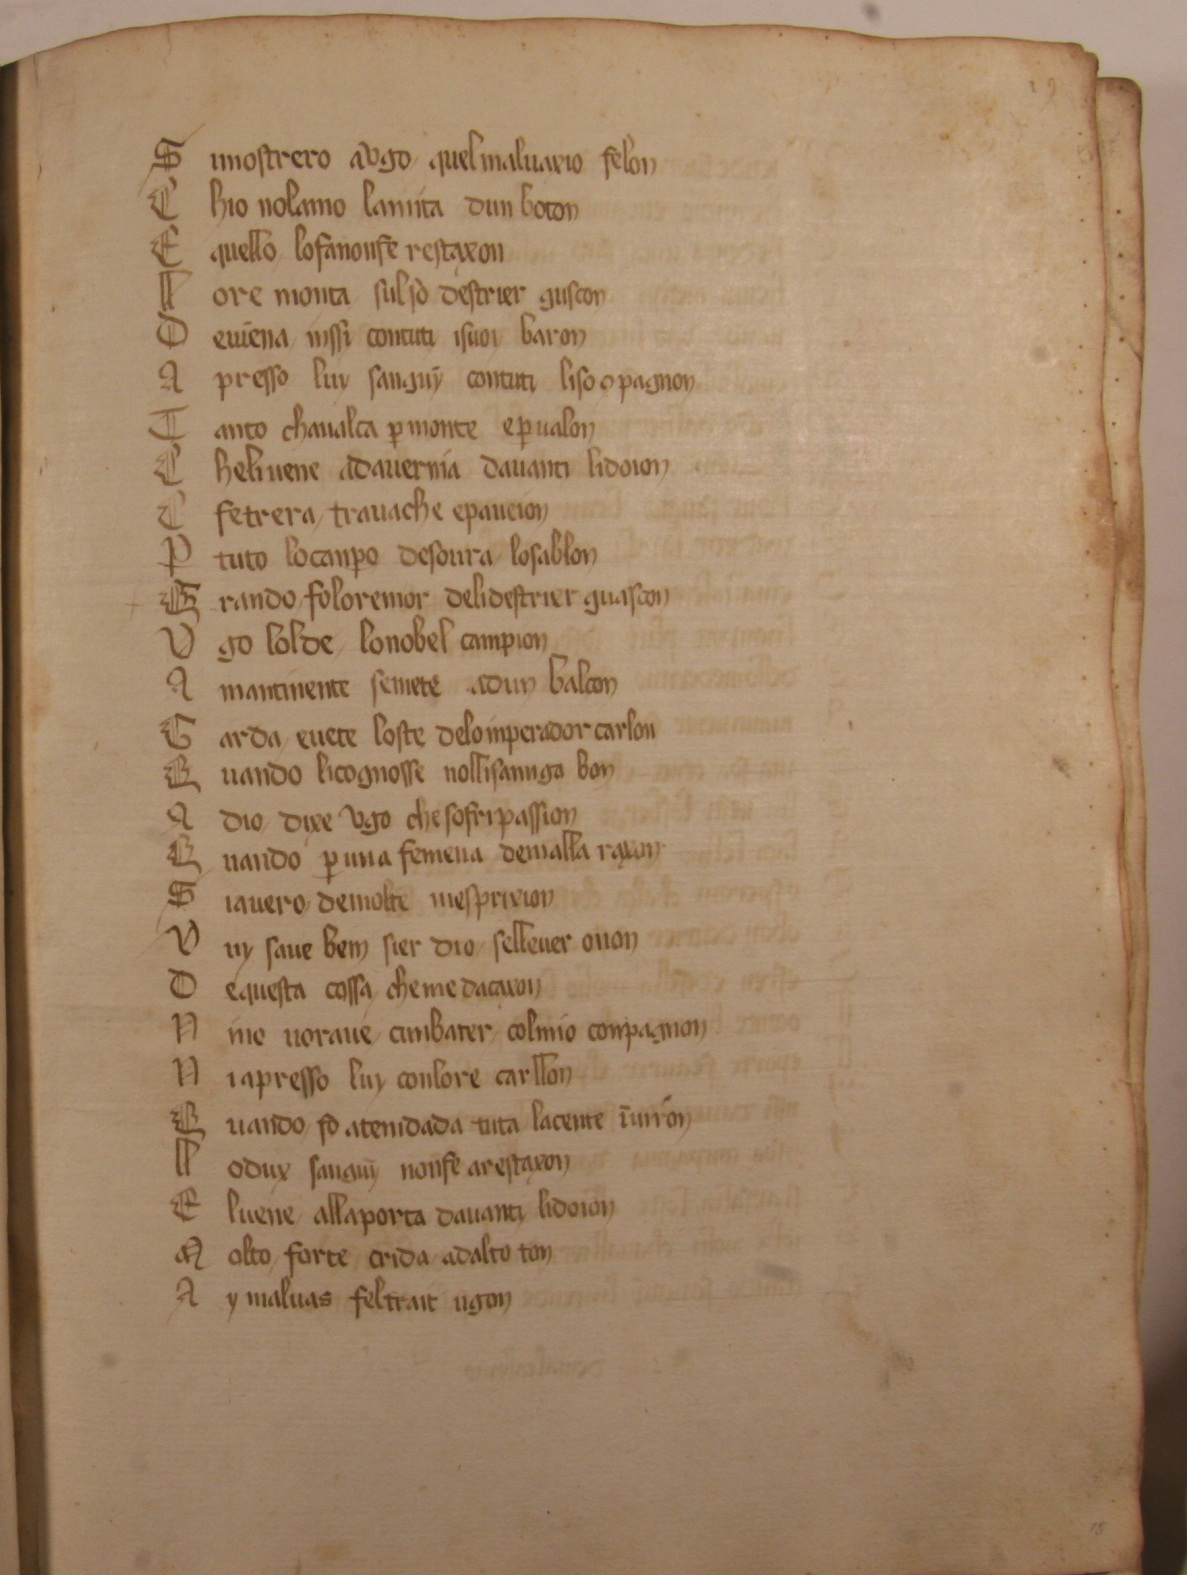 19
S imostrero aVgo quel maluaxio felon
C hio nolamo lamita dun boton
E quello lofanonse restaxon
ll ore monta sulso destrier guscon
D euiena inssi contuti isuoi baron
A presso luy sanguȳ contuti liso opagnon
T anto chaualca p monte e pualon
C heliuene adauernia dauanti lidoion
C fetrera trauache epaueion
P tuto locanpo desoura losablon
G rando foloremor delidestrier guascon
V go lolde lonobel campion
A mantinente semete adun balcon
G arda euete loste delo inperador carlon
Q uando licognosse nollisannga bon
A dio dixe Vgo chesofri passion
Q uando p una femena demalla raxon
S iauero demolte mesprixion
V uy saue bem sier dio selleuer onon
D equesta cossa cheme dacaxon
N ino uoraue cunbater colmio conpagnon
N iapresso luy conlore carllon
Q uando fo atenidada tuta lacente ī uirōn
ll odux sanguȳ nonse arestaxon
E luene allaporta dauanti lidoion
M olto forte crida adalto ton
A y maluas feltrait ugon
18